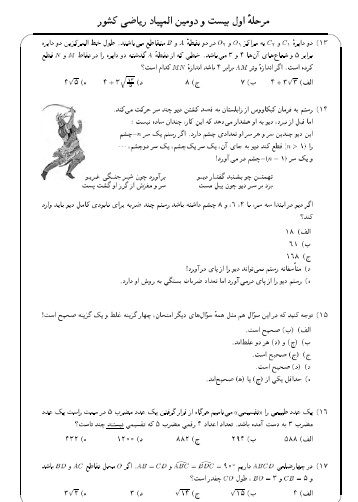 مرحلهٔ اول بیست و دومین المپیاد ریاضی کشور
۱۳) دو دایرهٔ C₁ و C₂ به مراکز O₁ و O₂ در دو نقطهٔ A و B متقاطع می‌باشند. طول خط المرکزین دو دایره
برابر ۵ و شعاع‌های آن‌ها ۴ و ۳ می‌باشد. خطی که از نقطهٔ A گذشته دو دایره را در نقاط M و N قطع
کرده است. اگر اندازهٔ وتر AM برابر ۴ باشد اندازهٔ MN کدام است؟
الف) ۴ + ۳√۳ ب) ۷ ج) ۸ د) ه) ۴√۵
۱۴) رستم به فرمان کیکاووس از زابلستان به قصد کشتن دیو چند سر حرکت می‌کند.
اما قبل از نبرد، دیو به او هشدار می‌دهد که این کار، چندان ساده نیست:
این دیو چندین سر و هر سر او تعدادی چشم دارد. اگر رستم یک سر n-چشم
را (n > ۱) قطع کند دیو به جای آن، یک سر یک‌چشم، یک سر دوچشم، ...
و یک سر (n − ۱)-چشم در می‌آورد!
تهمتن چو بشنید گفتار دیو برآورد چون شیر جنگی غریو
بزد بر سر دیو چون پیل مست سر و مغزش از گرز او گشت پست
اگر دیو در ابتدا سه سر، با ۲، ۶، و ۸ چشم داشته باشد رستم چند ضربه برای نابودی کامل دیو باید وارد
کند؟
الف) ۱۸
ب) ۶۱
ج) ۱۶۸
د) متأسفانه رستم نمی‌تواند دیو را از پای درآورد!
ه) رستم دیو را از پای درمی‌آورد اما تعداد ضربات بستگی به روش او دارد.
۱۵) توجه کنید که در این سؤال هم مثل همهٔ سؤال‌های دیگر امتحان، چهار گزینه غلط و یک گزینه صحیح است!
الف) (ب) صحیح است.
ب) (ج) و (د) هر دو غلط‌اند.
ج) (ج) صحیح است.
د) (د) صحیح است.
ه) حداقل یکی از (ج) یا (ه) صحیح‌اند.
۱۶) یک عدد طبیعی را می‌نامیم هرگاه از قرار گرفتن یک عدد مضرب ۵ در سمت راست یک عدد
مضرب ۳ به دست آمده باشد. تعداد اعداد ۴ رقمی مضرب ۵ که نیستند چند تاست؟
الف) ۵۸۸ ب) ۲۹۴ ج) ۸۸۲ د) ۱۲۰۰ ه) ۴۳۲
۱۷) در چهارضلعی ABCD داریم ABC = BDC = ۹۰° و AB = CD. اگر O محل تقاطع AC و BD باشد
و CB = ۵ و BO = ۳، طول CO چقدر است؟
الف) ۴ ب) √۱۵ ج) √۱۴ د) ۳ ه) ۳√۲